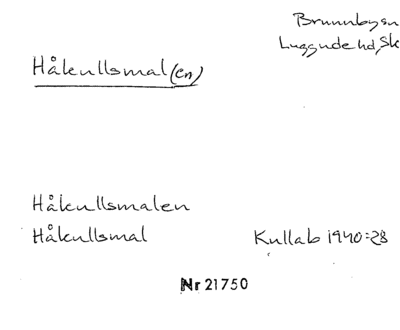 Brunnbysn
Luggude hd, Sk
Håkullsmal(en)
Håkullsmalen
Håkullsmal Kullab 1940:28
Nr 21750